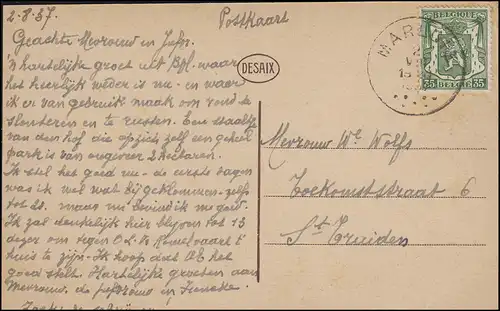 2-8-37.
Postkaart
Geachte Mevrouw en Jufr.
'n hartelijke groet uit Bpl. waar
het heerlijk weder is nu - en waar
ik er van gebruik maak om rond te
slenteren en te rusten. Een staaltje
van den hof die op zich zelf een geheel
park is van ongeveer 2 Hectaren.
Ik stel het goed nu - de eerste dagen
was ik wel wat bij geklommen - zelfs
tot 20. maar nu bevind ik me goed.
Ik zal denkelijk hier blijven tot 13
dezer om tegen O.L.V. Hemelvaart t'
huis te zijn. Ik hoop dat U het
goed stelt. Hartelijke groeten aan
Mevrouw, de
DESAIX
Mevrouw We Wolfs
Toekomststraat 6
St Truiden
BELGIQUE
35 35
BELGIE
MAR